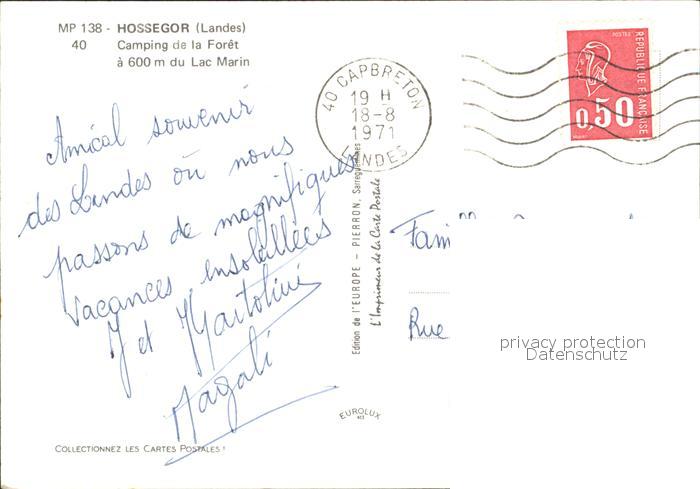 MP 138 - HOSSEGOR (Landes)
40 Camping de la Forêt
à 600 m du Lac Marin
Amical souvenir
des Landes où nous
passons de magnifiques
vacances ensoleillées
et Martolini
Magali
COLLECTIONNEZ LES CARTES POSTALES !
40 CAPBRETON
19 H
18-8
1971
LANDES
POSTES
REPUBLIQUE FRANÇAISE
0,50
Edition de l'EUROPE - PIERRON, Sarreguemines
L'Imprimeur de la Carte Postale
EUROLUX
Rue
privacy protection
Datenschutz